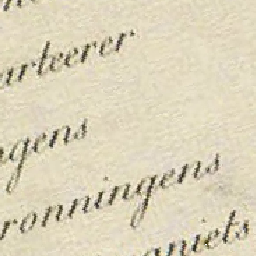 arteerer
gens
ronningens
aniels